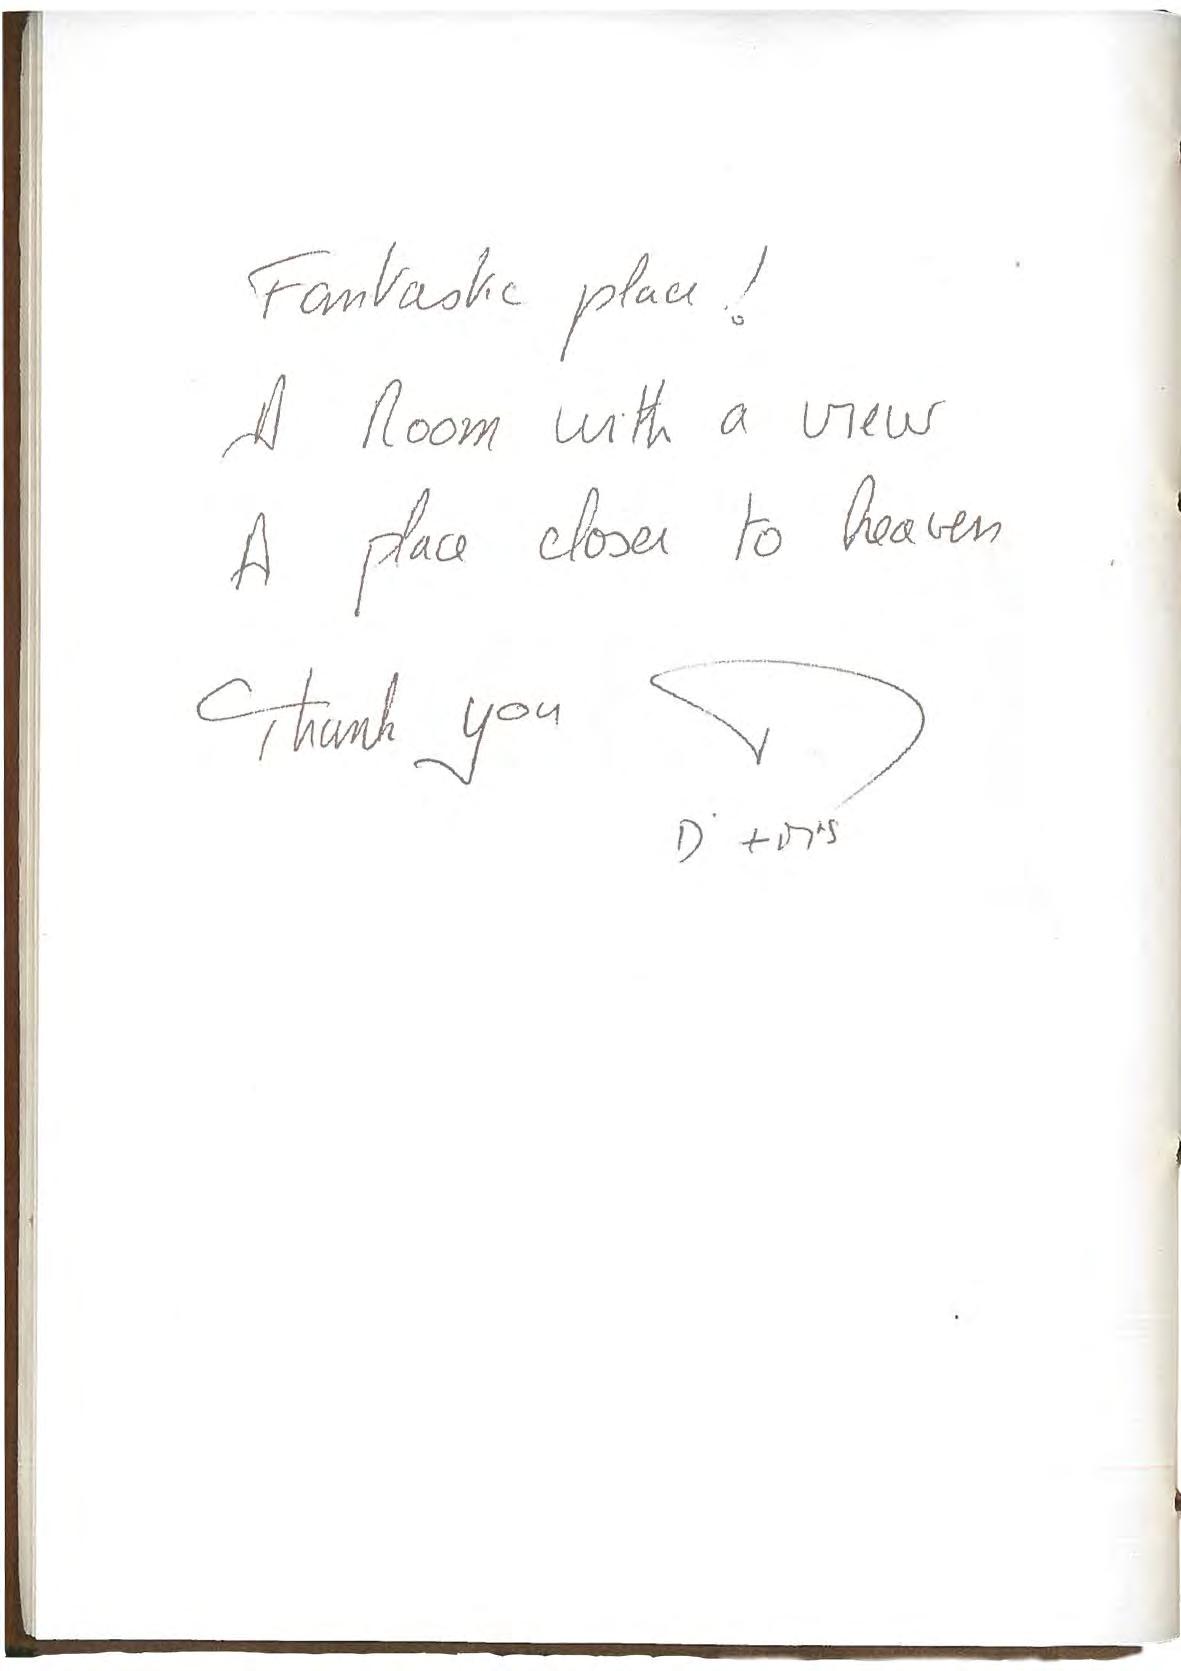 Fantastic place!
A Room with a view
A place closer to heaven
Thank you